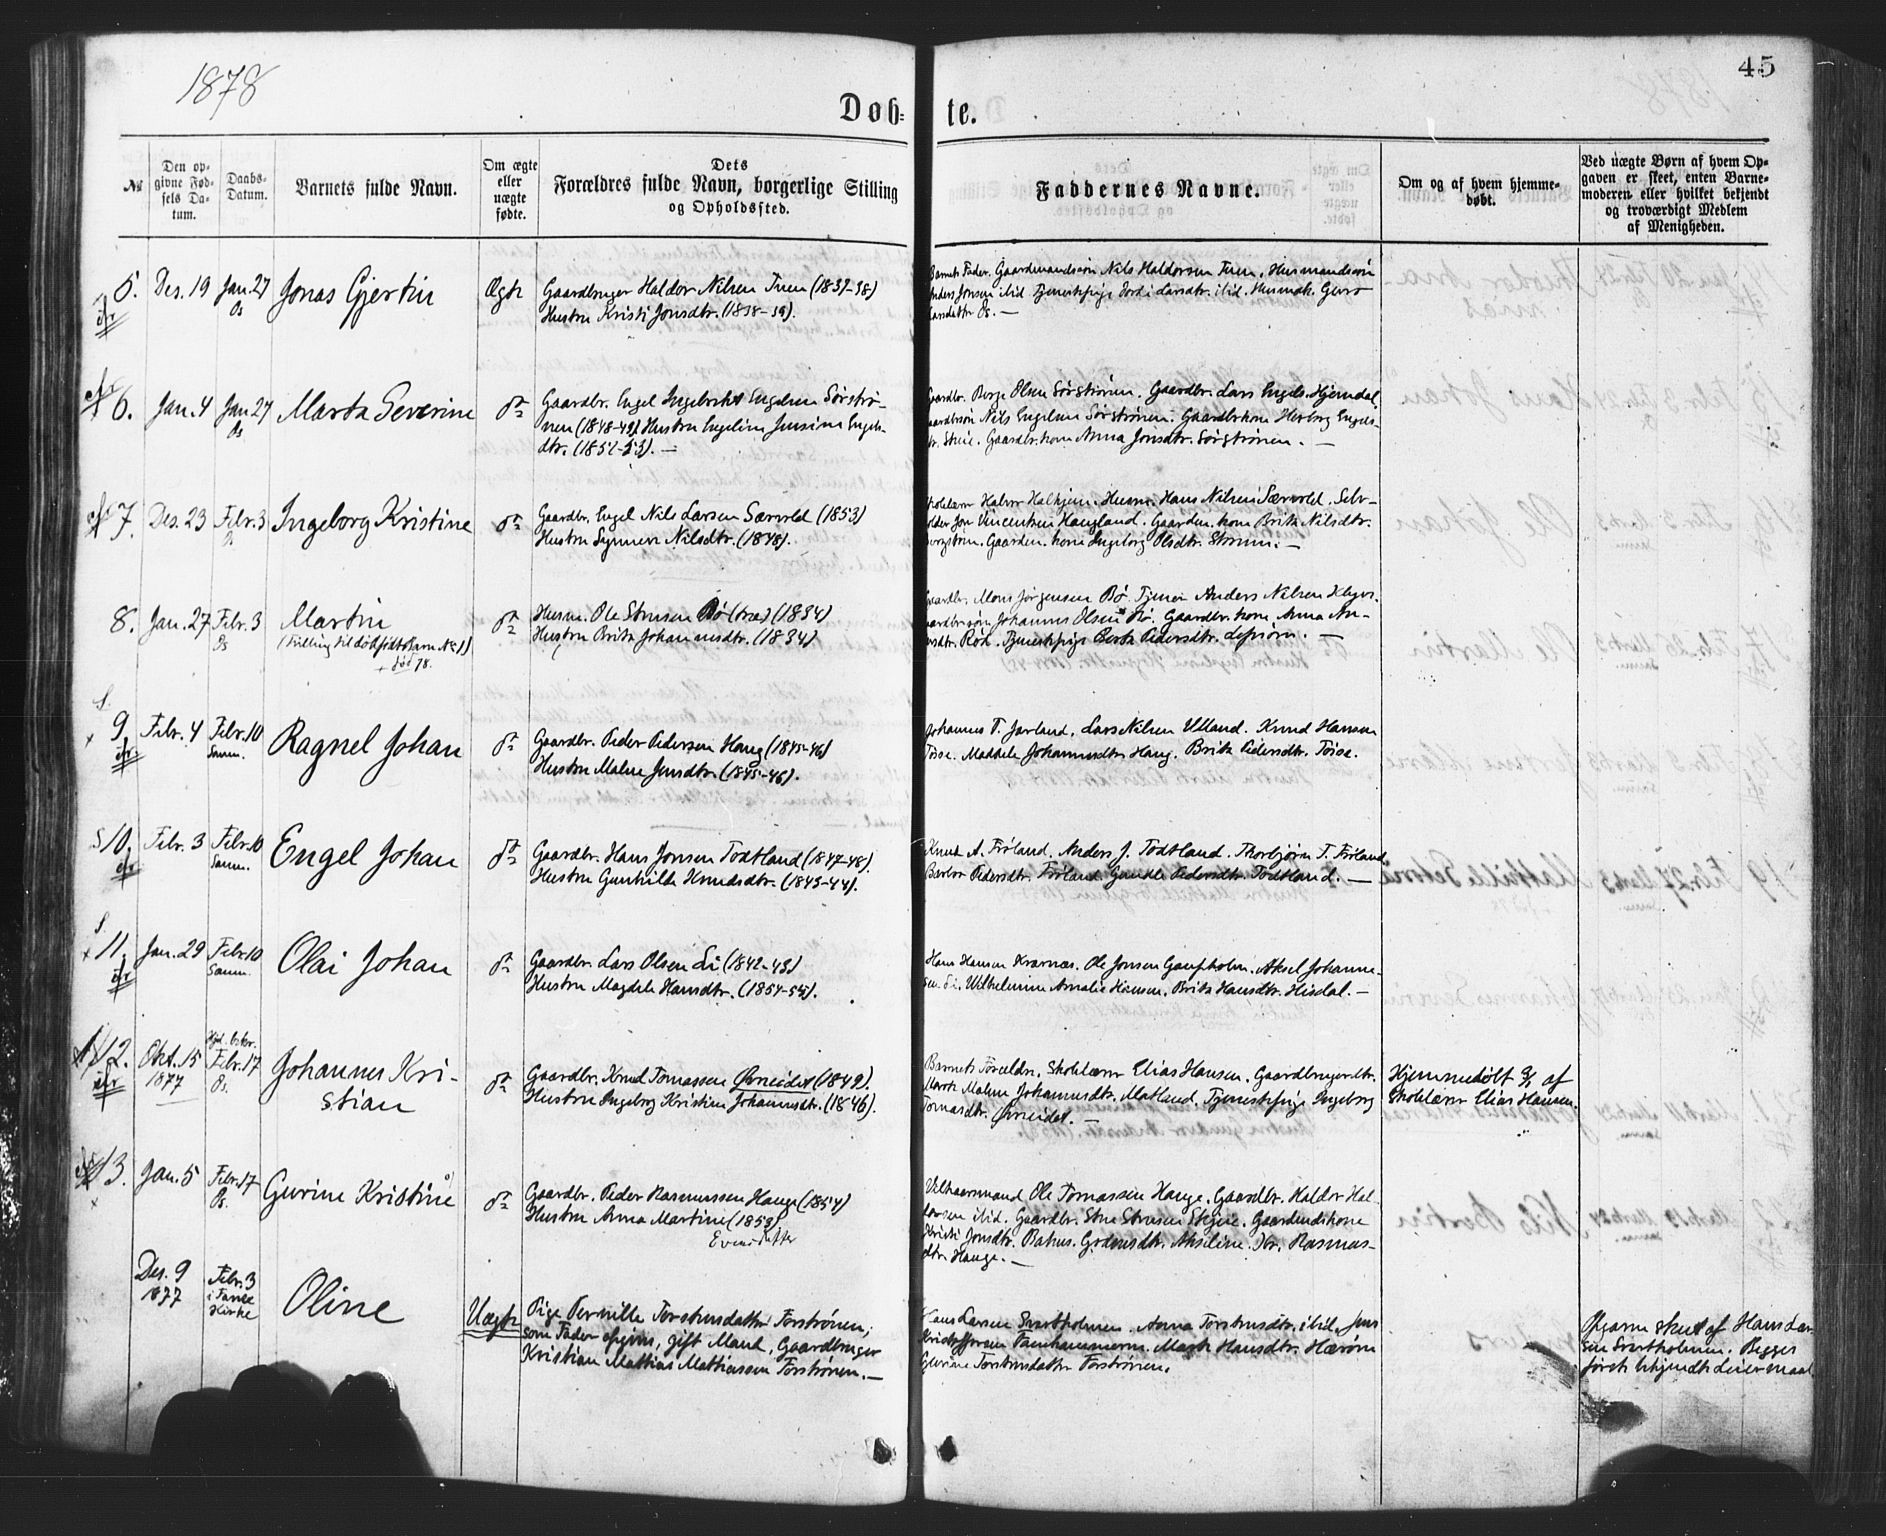 1878
45
Døb-te.
№
Den opgivne Fødsels Datum.
Daabs-Datum.
Barnets fulde Navn.
Om ægte eller uægte fødte.
Dets Forældres fulde Navn, borgerlige Stilling og Opholdssted.
Faddernes Navne.
Om og af hvem hjemmedøbt.
Ved uægte Børn af hvem Opgaven er skeet, enten Barnemoderen eller hvilket bekjendt og troværdigt Medlem af Menigheden.
5. Des. 19 Jan. 27 Os Jonas Gjertin Ægte
Gaardbruger Haldor Nilsen Tuen (1837-38)
Hustru Kristi Jonsdtr. (1838-39).
Barnets Fader. Gaardmandssøn Nils Haldorsen Tuen, Husmandssøn
Anders Jonsen ibid. Tjenestepige Larsdtr. ibid. Guro
Larsdatter Os. —
6. Jan. 4 Jan 27 Os Marta Severine do
Gaardbr. Engel Ingebrikt Engelsen Sørstrø-
nen (1848-49) Hustru Engeline Jensine Engels-
dtr. (1852-53). —
Gaardbr. Børge Olsen Sørstrønen. Gaardbr. Lars Engels. Hjemdal,
Gaardbrsøn Nils Engelsen Sørstrønen. Gaardbrkone Herborg Engels-
dtr. Skeie. Gaardbr. kone Anna Jonsdtr. Sørstrønen. —
7. Des. 23 Febr. 3 Os Ingeborg Kristine do
Gaardbr. Engel Nils Larsen Særvold (1853)
Hustru Synneve Nilsdtr. (1848).
Skolelærer Halvor Halhjem. Husm. Hans Nilsen Særvold. Selv-
Jon Vincentsen Haugland. Gaardm. kone Brita Nilsdtr.
Gaardm. kone Ingeborg Olsdtr. Strønen. —
8. Jan. 27 Febr. 3 Os Martin do
(Tvilling til dødfødt Barn № 1)
+ død 78.
Husm. Ole Strusen Bø (træ) (1834)
Hustru Brita Johannesdtr. (1834)
Gaardbr. Mons Jørgensen Bø. Tjener Anders Nilsen
Gaardbrsøn Johannes Olsen Bø. Gaardbr. kone Anna An-
dersdtr. Rød. Tjenestepige Berta Pedersdtr. Lepsøen. —
9. Febr. 4 Febr. 10 Samn. Ragnel Johan do
Gaardbr. Peder Pedersen Haug (1845-46)
Hustru Malene Jensdtr. (1845-46).
Johannes T. Jarland, Lars Nilsen Ulland. Knud Hansen
Tøsse. Maddele Johannesdtr. Haug. Brita Pedersdtr. Tøsse.
10. Febr. 3 Febr. 10 Samn. Engel Johan do
Gaardbr. Hans Jonsen Todtland (1847-48).
Hustru Gunhilde Knudsdtr. (1843-44).
Knud A. Frøland. Anders J. Todtland. Thorbjørn T. Frøland
Barbro Pedersdtr. Frøland. Gundle Pedersdtr. Todtland. —
11. Jan. 29 Febr. 10 Samn. Olai Johan do
Gaardbr. Lars Olsen Li (1842-43)
Hustru Magdele Hansdtr. (1854-55).
Hans Hansen Kvarnæs. Ole Jonsen Gaupholm. Aksel Johanne-
sen Li. Wilhelmine Amalie Hansen. Brita Hansdtr. Hisdal. —
12. Okt. 15 1877 Febr. 17 Os. Johannes Kri-
stian do
Gaardbr. Knud Tomassen Øvreeidet (1849).
Hustru Ingeborg Kristine Johannesdtr. (1846).
Barnets Forældre. Skolelærer Elias Hansen. Gaardbrugerdtr.
Marta Malene Johannesdtr. Matland. Tjenestepige Ingeborg
Tomasdtr. Øvreeidet. —
Hjemmedøbt af
Skolelærer Elias Hansen.
13. Jan. 5 Febr. 17 Os. Gurine Kristine do
Gaardbr. Peder Rasmussen Hauge (1854)
Hustru Anna Martine (1853)
Evensdatter
Vilkaarsmand Ole Tomassen Hauge. Gaardbr. Haldor Hal-
dorsen ibid. Gaardbr. Sten Strusen Skjeie. Gaardmdskone
Kristi Jonsdtr. Bahus. Akseline Kr. Rasmus-
dtr. Hauge. —
Des. 9 1877 Febr. 3 i Fane Kirke Oline Uægte
Pige Pernille Torstensdatter Forstrønen;
som Fader opgives, gift Mand, Gaardbruger
Kristian Mattias Mattiassen Forstrønen. —
Hans Larsen Svartholmen. Anna Torstensdtr. ibid. Jens
Kristoffersen Marta Hansdtr. Hærøen
Gurine Torstensdatter Forstrønen.
Opgaven skeet af Hans Lar-
sen Svartholmen. Begges
første bekjendte Leiermaal